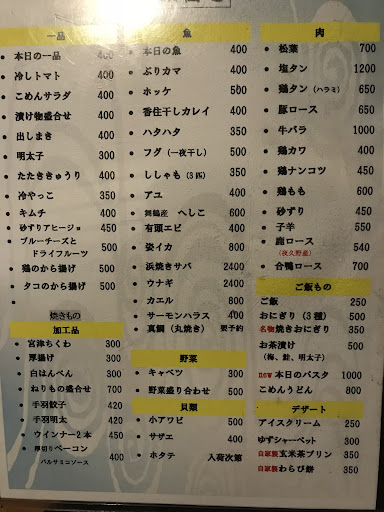 一品
本日の一品 400
冷しトマト 400
こめんサラダ 400
漬け物盛合せ 400
出しまき 400
明太子 300
たたききゅうり 400
冷やっこ 350
キムチ 400
砂ずりアヒージョ 450
ブルーチーズと
ドライフルーツ 500
鶏のから揚げ 500
タコのから揚げ 500
焼きもの
加工品
宮津ちくわ 300
厚揚げ 300
白はんぺん 300
ねりもの盛合せ 700
手羽餃子 420
手羽明太 420
ウインナー2本 450
厚切りベーコン 400
バルサミコソース
魚
本日の魚 400
ぶりカマ 400
ホッケ 500
香住干しカレイ 400
ハタハタ 350
フグ（一夜干し） 500
ししゃも（3匹） 350
アユ 400
舞鶴産 へしこ 600
有頭エビ 400
姿イカ 800
浜焼きサバ 2400
ウナギ 2400
カエル 800
サーモンハラス 400
真鯛（丸焼き） 要予約
野菜
キャベツ 300
野菜盛り合わせ 500
貝類
小アワビ 500
サザエ 400
ホタテ 入荷次第
肉
松葉 700
塩タン 1200
鶏タン（ハラミ） 650
豚ロース 650
牛バラ 1000
鶏カワ 400
鶏ナンコツ 450
鶏もも 600
砂ずり 450
子羊 550
鹿ロース 540
（夜久野産）
合鴨ロース 700
ご飯もの
ご飯 250
おにぎり（3種） 500
名物焼きおにぎり 350
お茶漬け 500
（海苔、鮭、明太子）
new本日のパスタ 1000
こめんうどん 800
デザート
アイスクリーム 250
ゆずシャーベット 300
自家製玄米茶プリン 350
自家製わらび餅 350